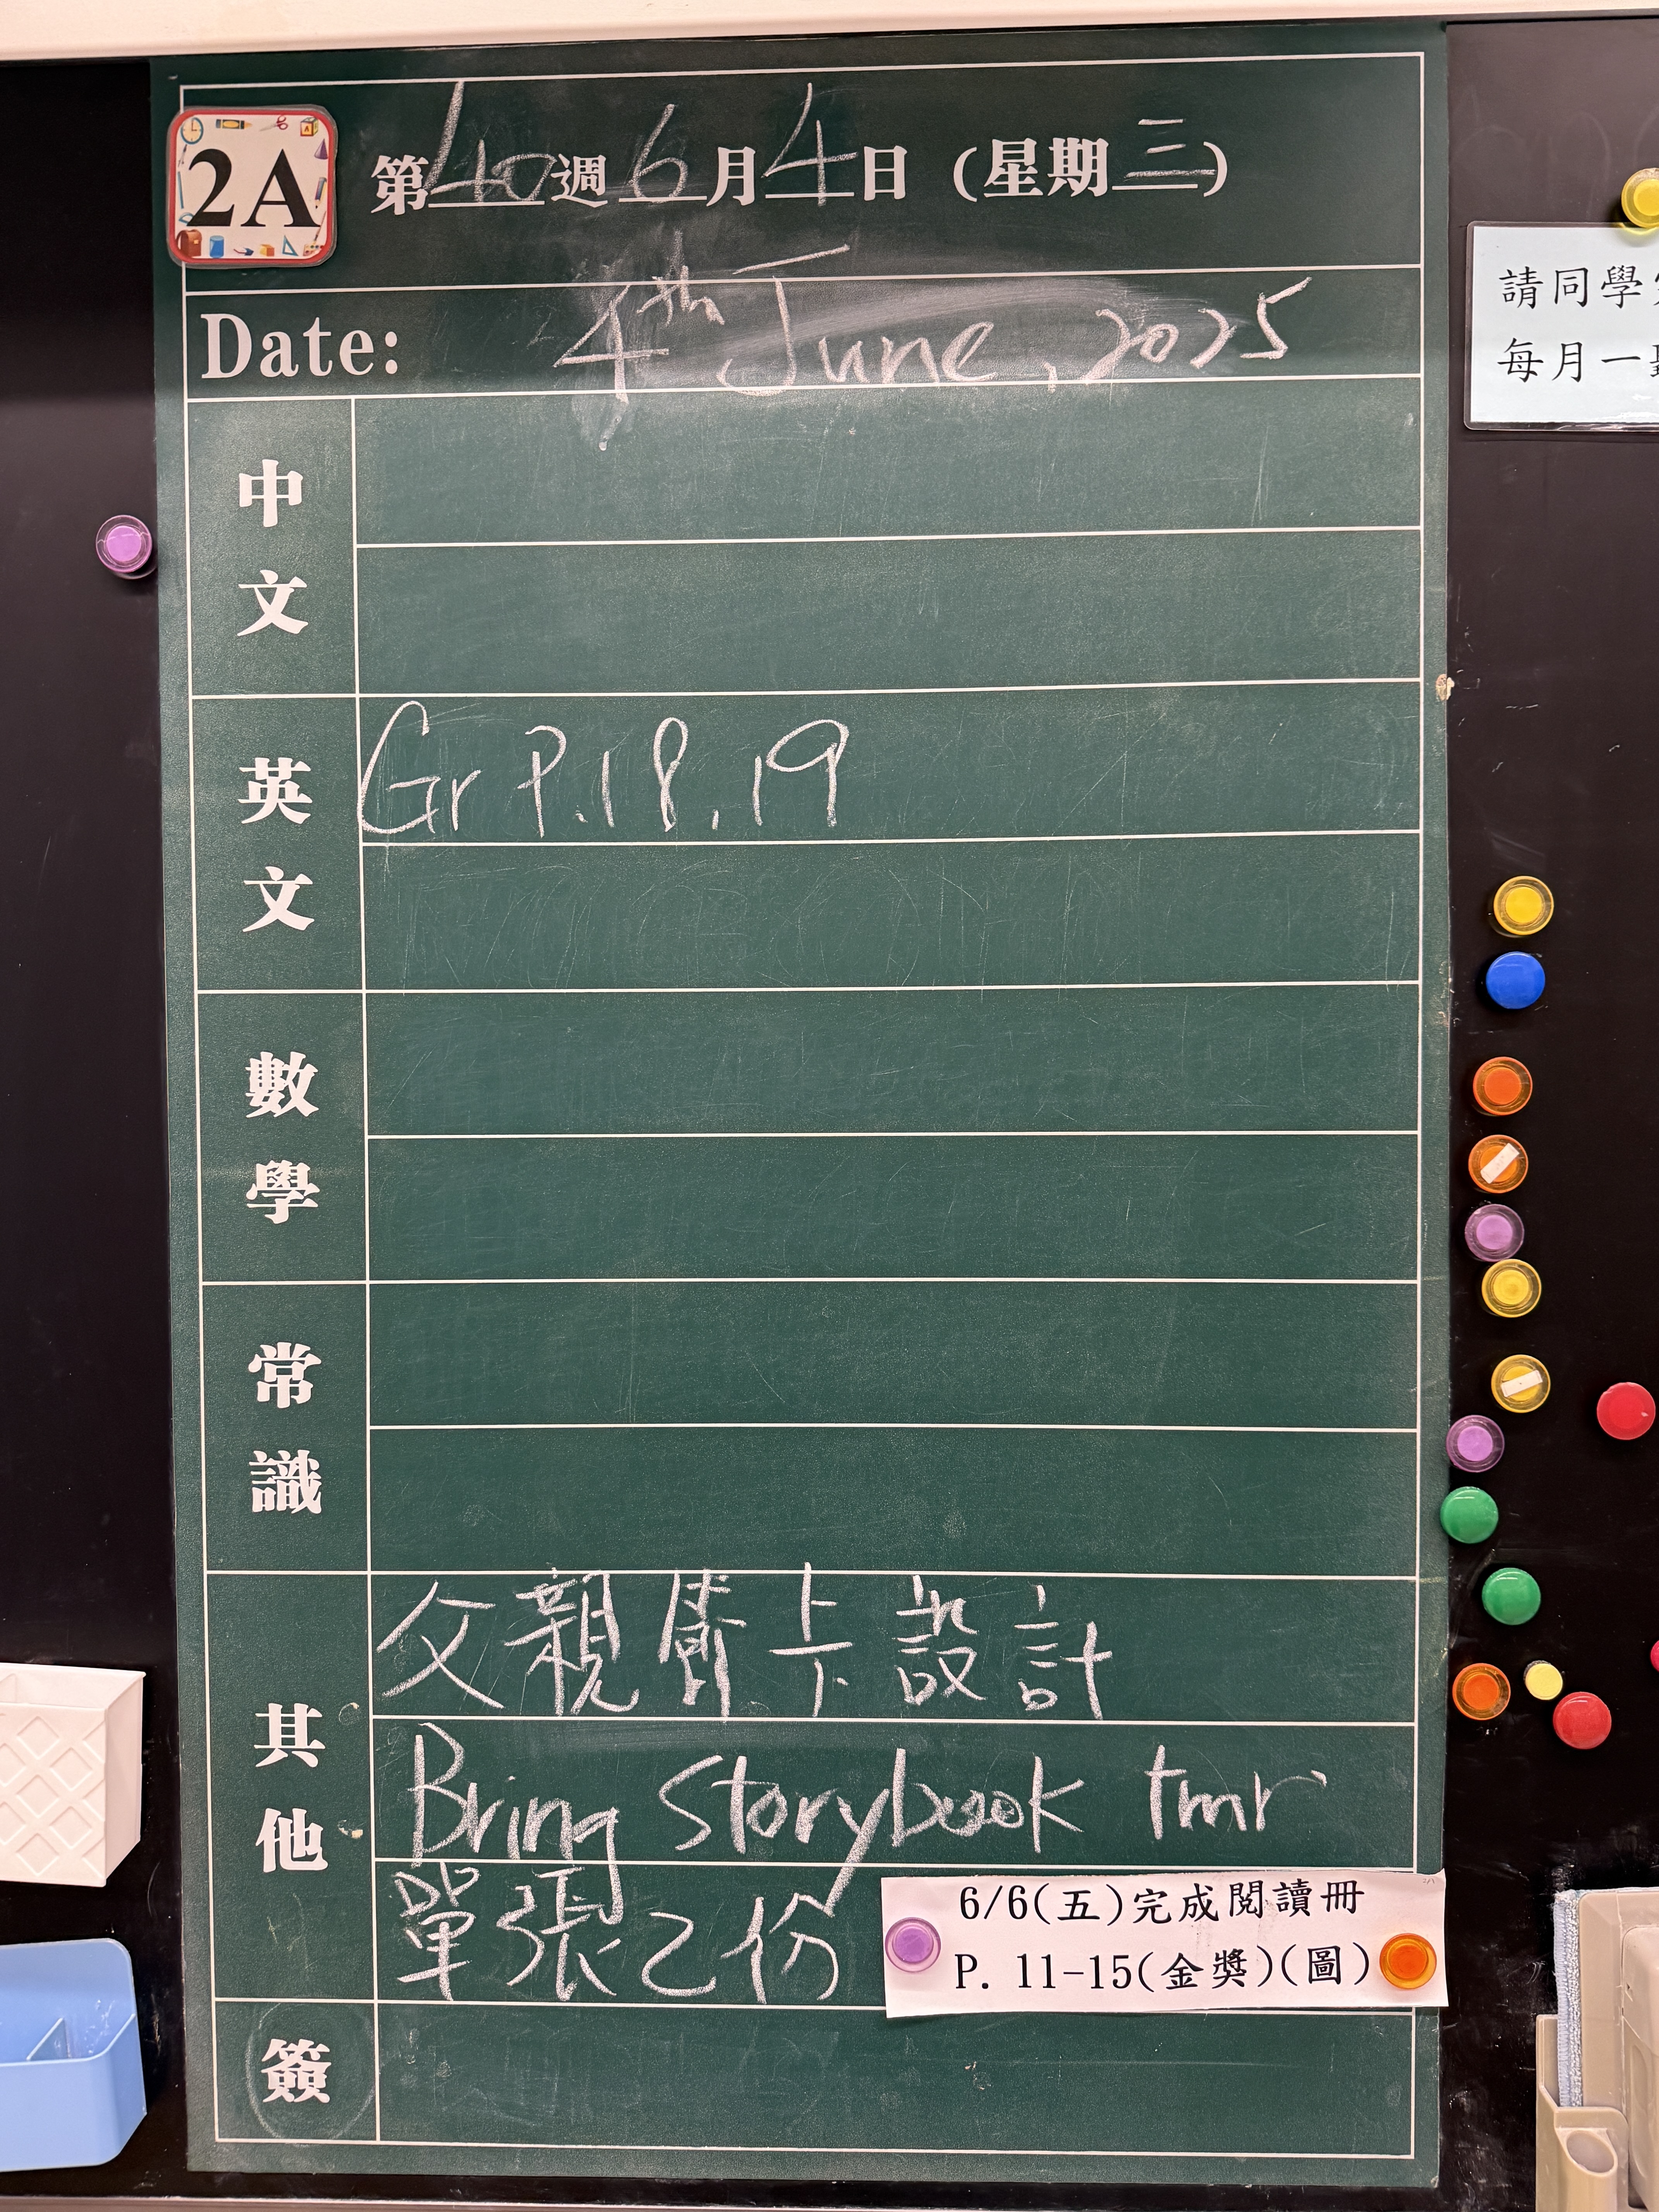 2A
第40週6月4日(星期三)
Date: 4th June, 2025
中文
英文
Gr P.18,19
數學
常識
其他
父親賀卡設計
Bring Storybook tmr
單張乙份
6/6(五)完成閱讀冊
P. 11-15(金獎)(圖)
簽
請同學
每月一